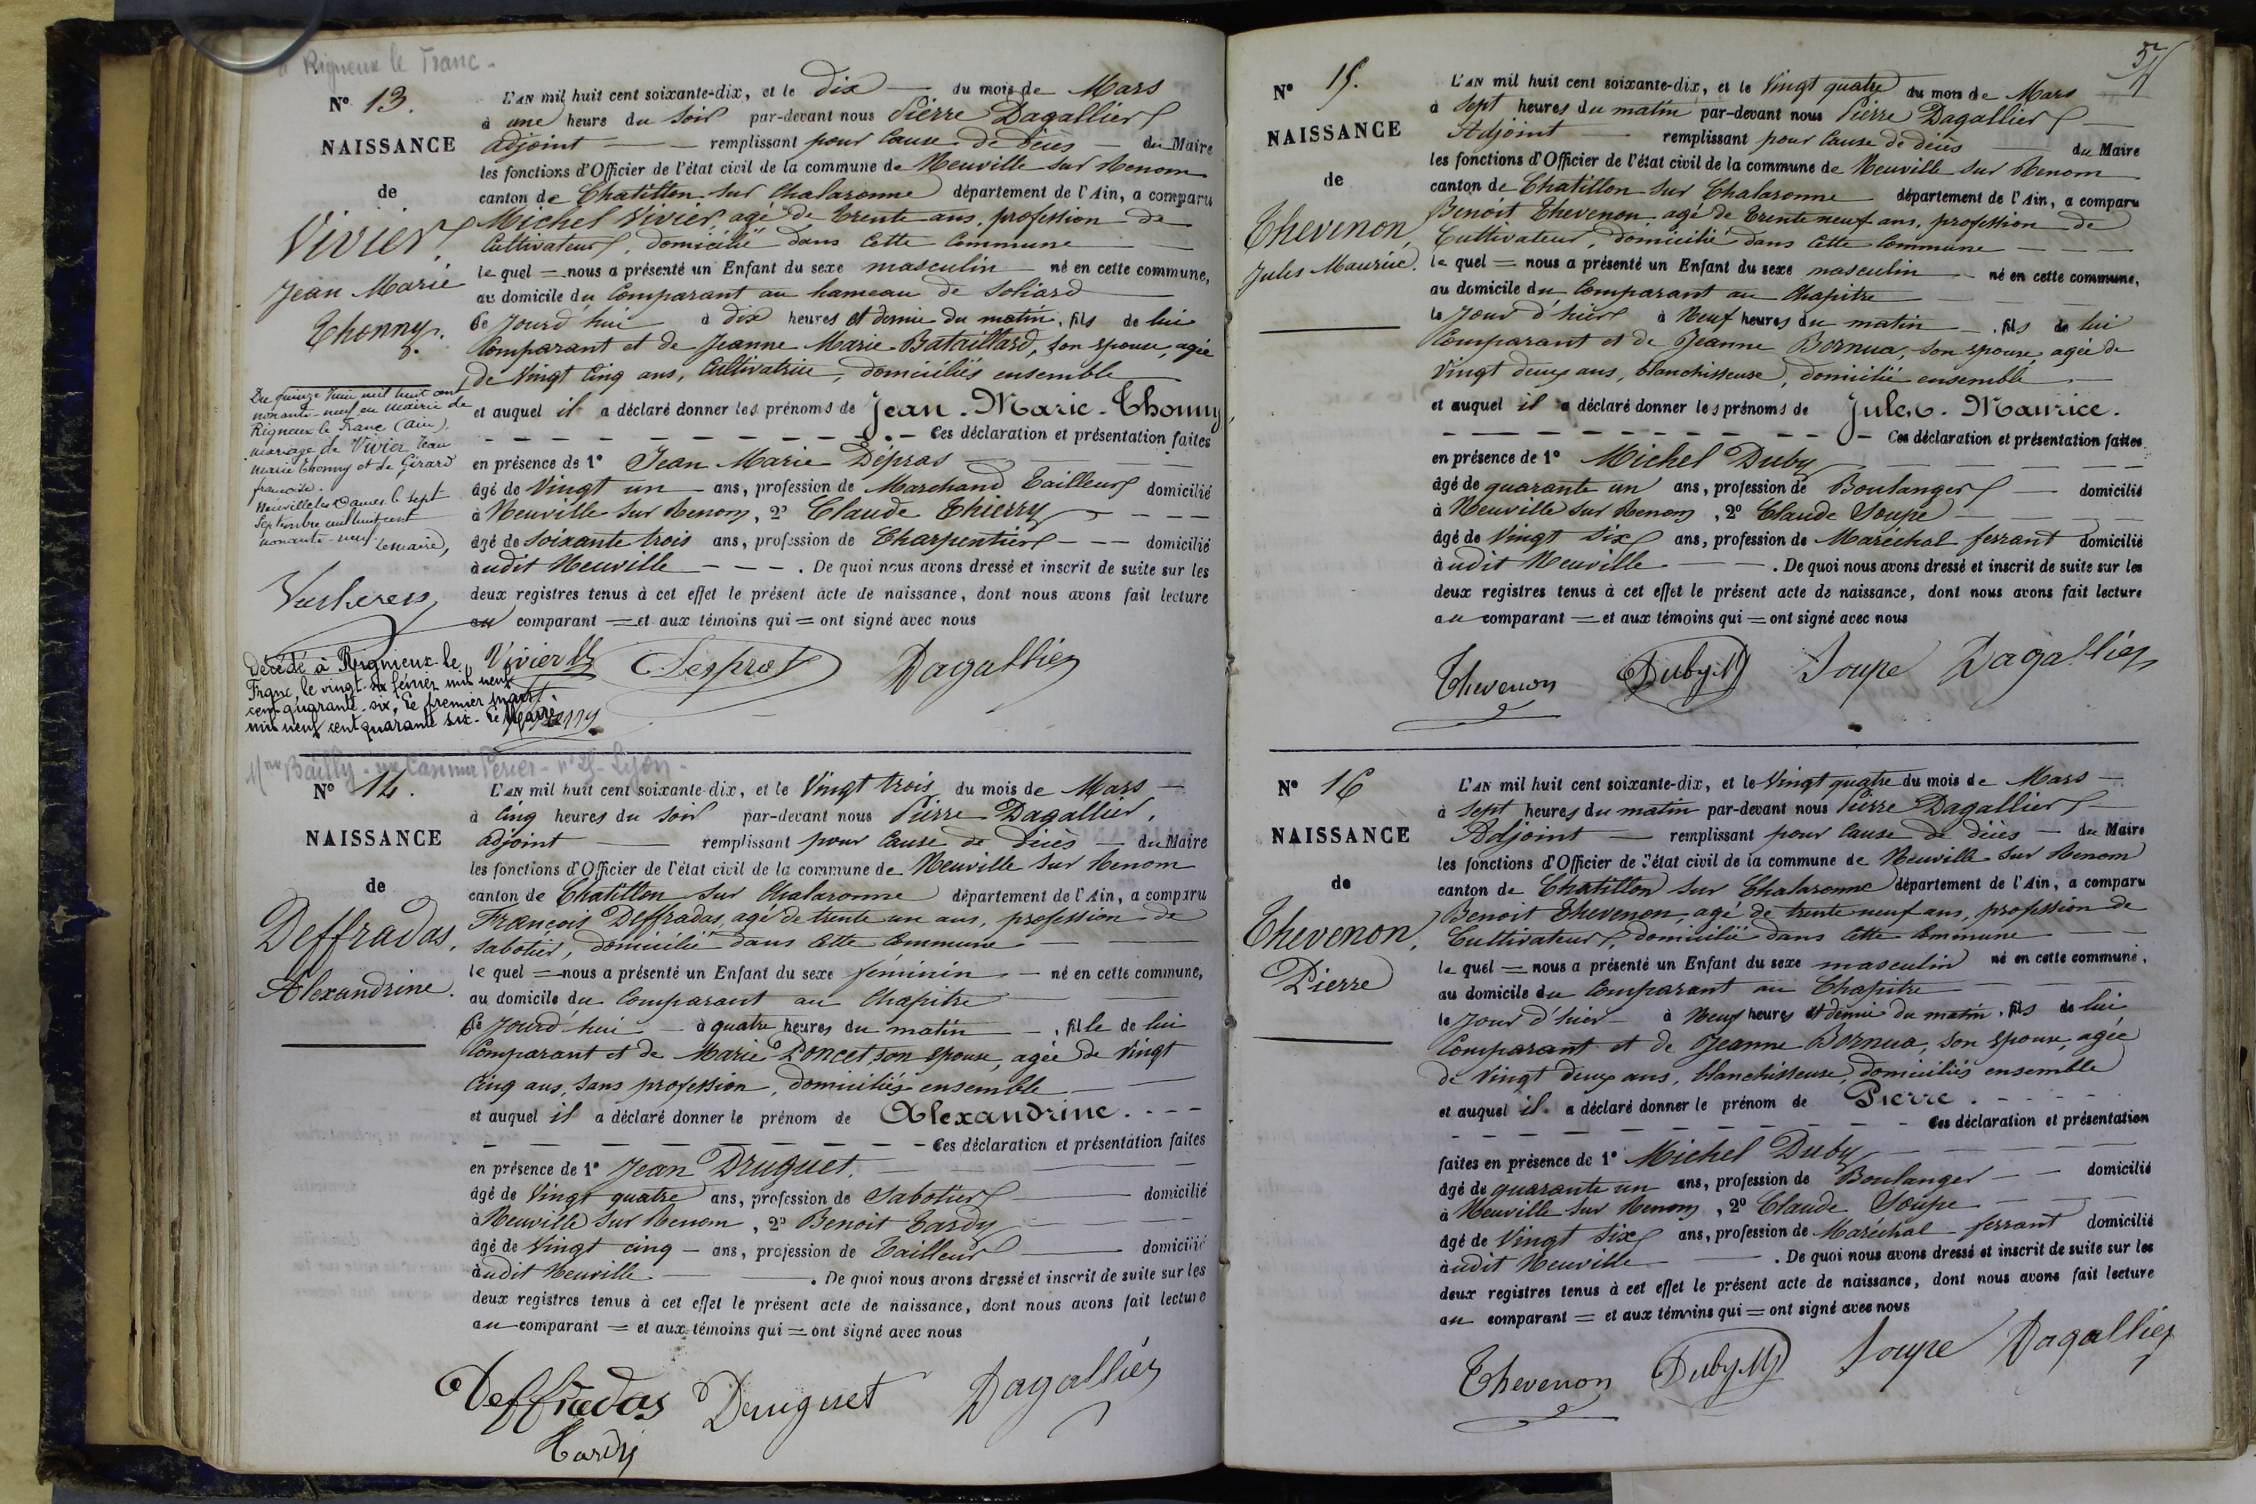 Rigneux le Franc -
N° 13.
NAISSANCE
de
Vivier,
Jean Marie
Thonny.
Du quinze Juin mil huit cent
nonante-neuf en mairie de
Rigneux le Franc (Ain),
mariage de Vivier Jean
Marie Thonny et de Girard
françoise.
Neuville les Dames le sept
Septembre mil huit cent
nonante-neuf. Le maire,
Décédé à Rigneux-le
Franc, le vingt-six février mil neuf
cent quarante-six, le premier mars
mil neuf cent quarante six - Le Maire
L'AN mil huit cent soixante-dix, et le dix — du mois de Mars
à une heure du soir par-devant nous Pierre Dagallier
adjoint — remplissant pour Cause de décès — du Maire
les fonctions d'Officier de l'état civil de la commune de Neuville sur Renom
canton de Chatillon sur Chalaronne département de l'Ain, a comparu
Michel Vivier, agé de trente ans, profession de
Cultivateur, domicilié dans cette Commune
lequel = nous a présenté un Enfant du sexe masculin — né en cette commune,
au domicile du Comparant au hameau de Soliard
ce Jourd'hui à dix heures et demie du matin, fils de lui
Comparant et de Jeanne Marie Bataillard, son épouse, agée
de Vingt Cinq ans, Cultivatrice, domiciliés ensemble
et auquel il a déclaré donner les prénoms de Jean-Marie-Thonny
— Ces déclaration et présentation faites
en présence de 1° Jean Marie Dépras
âgé de Vingt un — ans, profession de Marchand Tailleur domicilié
à Neuville sur Renom, 2° Claude Thierry
âgé de soixante trois ans, profession de Charpentier — domicilié
audit Neuville — . De quoi nous avons dressé et inscrit de suite sur les
deux registres tenus à cet effet le présent acte de naissance, dont nous avons fait lecture
au comparant = et aux témoins qui = ont signé avec nous
Vivier Dagallier
Mme Bailly - rue Casimir Périer - n° 25 - Lyon -
N° 14.
NAISSANCE
de
Deffradas,
Alexandrine.
L'AN mil huit cent soixante-dix, et le Vingt trois du mois de Mars —
à Cinq heures du soir par-devant nous Pierre Dagallier,
adjoint — remplissant pour Cause de décès — du Maire
les fonctions d'Officier de l'état civil de la commune de Neuville sur Renom
canton de Chatillon sur Chalaronne département de l'Ain, a comparu
François Deffradas, agé de trente un ans, profession de
Sabotier, domicilié dans cette Commune
lequel = nous a présenté un Enfant du sexe féminin — né en cette commune,
au domicile du Comparant au Chapitre
ce Jourd'hui — à quatre heures du matin — , fille de lui
Comparant et de Marie Poncet son épouse, agée de Vingt
Cinq ans, sans profession, domiciliés ensemble
et auquel il a déclaré donner le prénom de Alexandrine.
— Ces déclaration et présentation faites
en présence de 1° Jean Druguet.
âgé de Vingt quatre ans, profession de Sabotier — domicilié
à Neuville sur Renom, 2° Benoit Tardy
âgé de Vingt cinq — ans, profession de Tailleur — domicilié
audit Neuville — . De quoi nous avons dressé et inscrit de suite sur les
deux registres tenus à cet effet le présent acte de naissance, dont nous avons fait lecture
au comparant = et aux témoins qui = ont signé avec nous
Deffradas Druguet Dagallier
Tardy
N° 15.
NAISSANCE
de
Thevenon,
Jules Maurice.
L'AN mil huit cent soixante-dix, et le Vingt quatre du mois de Mars
à Sept heures du matin par-devant nous Pierre Dagallier
Adjoint — remplissant pour Cause de décès — du Maire
les fonctions d'Officier de l'état civil de la commune de Neuville sur Renom
canton de Chatillon sur Chalaronne département de l'Ain, a comparu
Benoit Thevenon, agé de trente neuf ans, profession de
Cultivateur, domicilié dans cette Commune
lequel = nous a présenté un Enfant du sexe masculin — né en cette commune,
au domicile du Comparant au Chapitre
le Jour d'hier à Neuf heures du matin — , fils de lui
Comparant et de Jeanne Bornua, son épouse, agée de
Vingt deux ans, blanchisseuse, domicilié ensemble
et auquel il a déclaré donner les prénoms de Jules-Maurice.
— Ces déclaration et présentation faites
en présence de 1° Michel Duby
âgé de quarante un ans, profession de Boulanger — domicilié
à Neuville sur Renom, 2° Claude Soupe
âgé de Vingt Six ans, profession de Maréchal ferrant domicilié
audit Neuville — . De quoi nous avons dressé et inscrit de suite sur les
deux registres tenus à cet effet le présent acte de naissance, dont nous avons fait lecture
au comparant = et aux témoins qui = ont signé avec nous
Thevenon Duby M Soupe Dagallier
N° 16
NAISSANCE
de
Thevenon,
Pierre
L'AN mil huit cent soixante-dix, et le Vingt quatre du mois de Mars —
à Sept heures du matin par-devant nous Pierre Dagallier
Adjoint — remplissant pour Cause de décès — du Maire
les fonctions d'Officier de l'état civil de la commune de Neuville sur Renom
canton de Chatillon sur Chalaronne département de l'Ain, a comparu
Benoit Thevenon, agé de trente neuf ans, profession de
Cultivateur, domicilié dans cette Commune
lequel = nous a présenté un Enfant du sexe masculin né en cette commune,
au domicile du Comparant au Chapitre
le Jour d'hier à Neuf heures et demie du matin, fils de lui
Comparant et de Jeanne Bornua, son épouse, agée
de Vingt deux ans, blanchisseuse, domiciliés ensemble
et auquel il a déclaré donner le prénom de Pierre.
— Ces déclaration et présentation
faites en présence de 1° Michel Duby
âgé de quarante un ans, profession de Boulanger — domicilié
à Neuville sur Renom, 2° Claude Soupe
âgé de Vingt Six ans, profession de Maréchal ferrant domicilié
audit Neuville — . De quoi nous avons dressé et inscrit de suite sur les
deux registres tenus à cet effet le présent acte de naissance, dont nous avons fait lecture
au comparant = et aux témoins qui = ont signé avec nous
Thevenon Duby M Soupe Dagallier